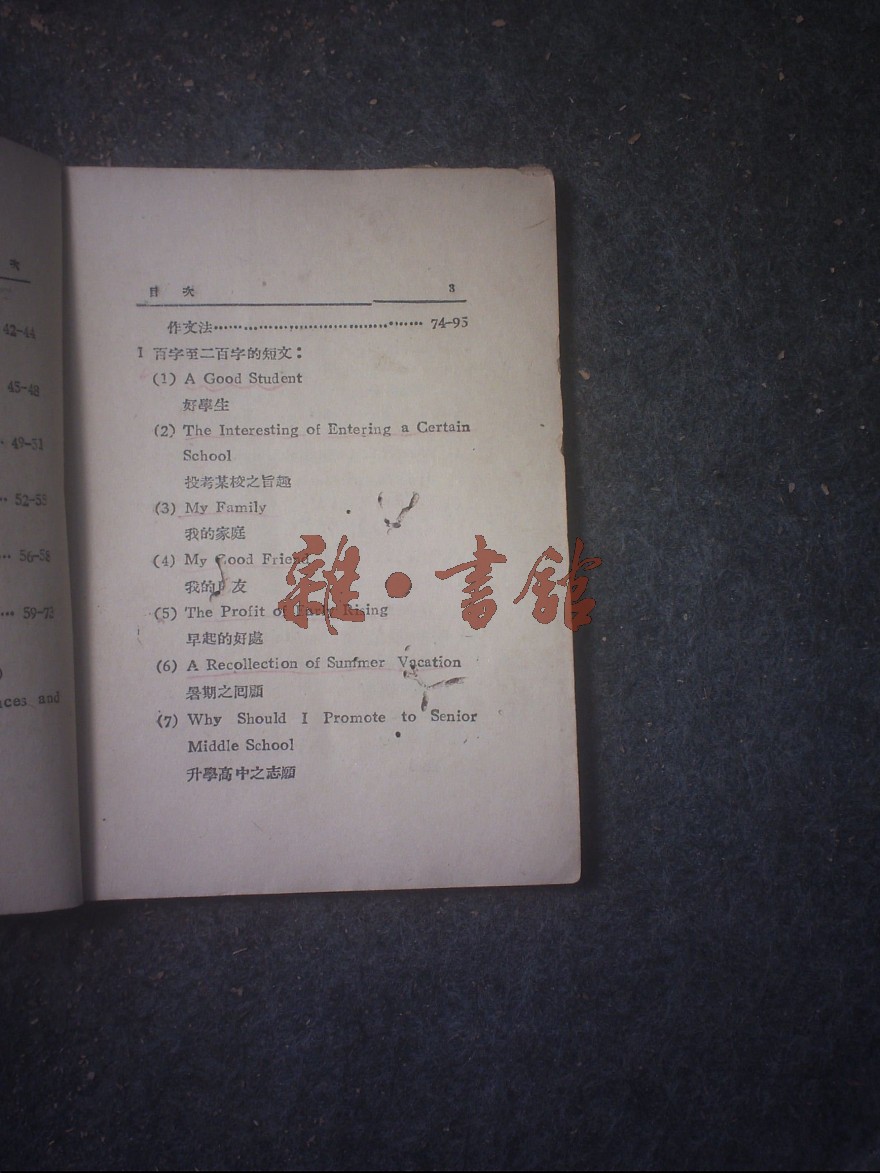 次
42-44
45-48
49-51
52-55
56-58
59-73
and
目 次 3
作文法 74-95
I 百字至二百字的短文：
(1) A Good Student
好學生
(2) The Interesting of Entering a Certain
School
投考某校之旨趣
(3) My Family
我的家庭
(4) My Good Friend
我的 友
(5) The Profit of Early Rising
早起的好處
(6) A Recollection of Summer Vacation
暑期之回顧
(7) Why Should I Promote to Senior
Middle School
升學高中之志願
雜·書館